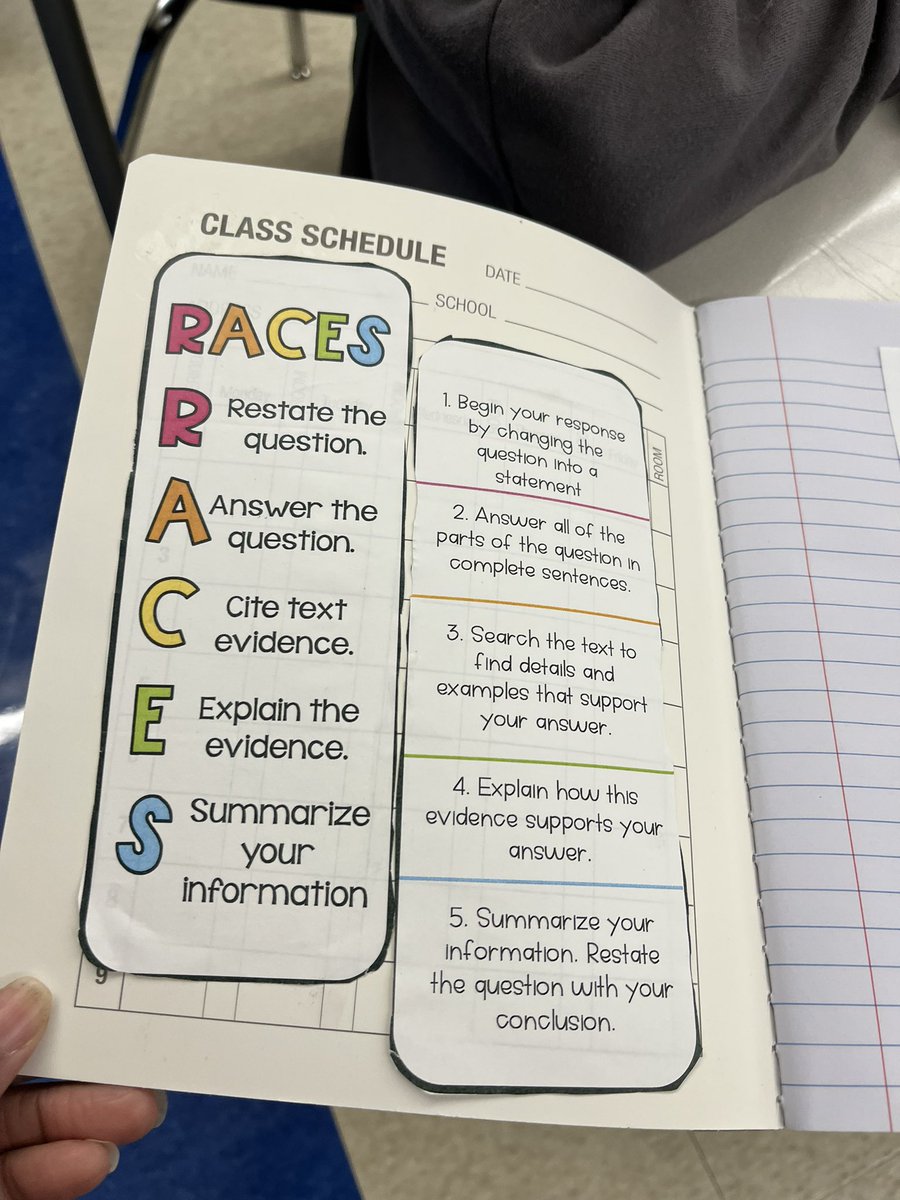 CLASS SCHEDULE
NAME
DATE
SCHOOL
ROOM
RACES
R Restate the
question.
A Answer the
question.
C Cite text
evidence.
E Explain the
evidence.
S Summarize
your
information
1. Begin your response
by changing the
question into a
statement
2. Answer all of the
parts of the question in
complete sentences.
3. Search the text to
find details and
examples that support
your answer.
4. Explain how this
evidence supports your
answer.
5. Summarize your
information. Restate
the question with your
conclusion.
3
8
9